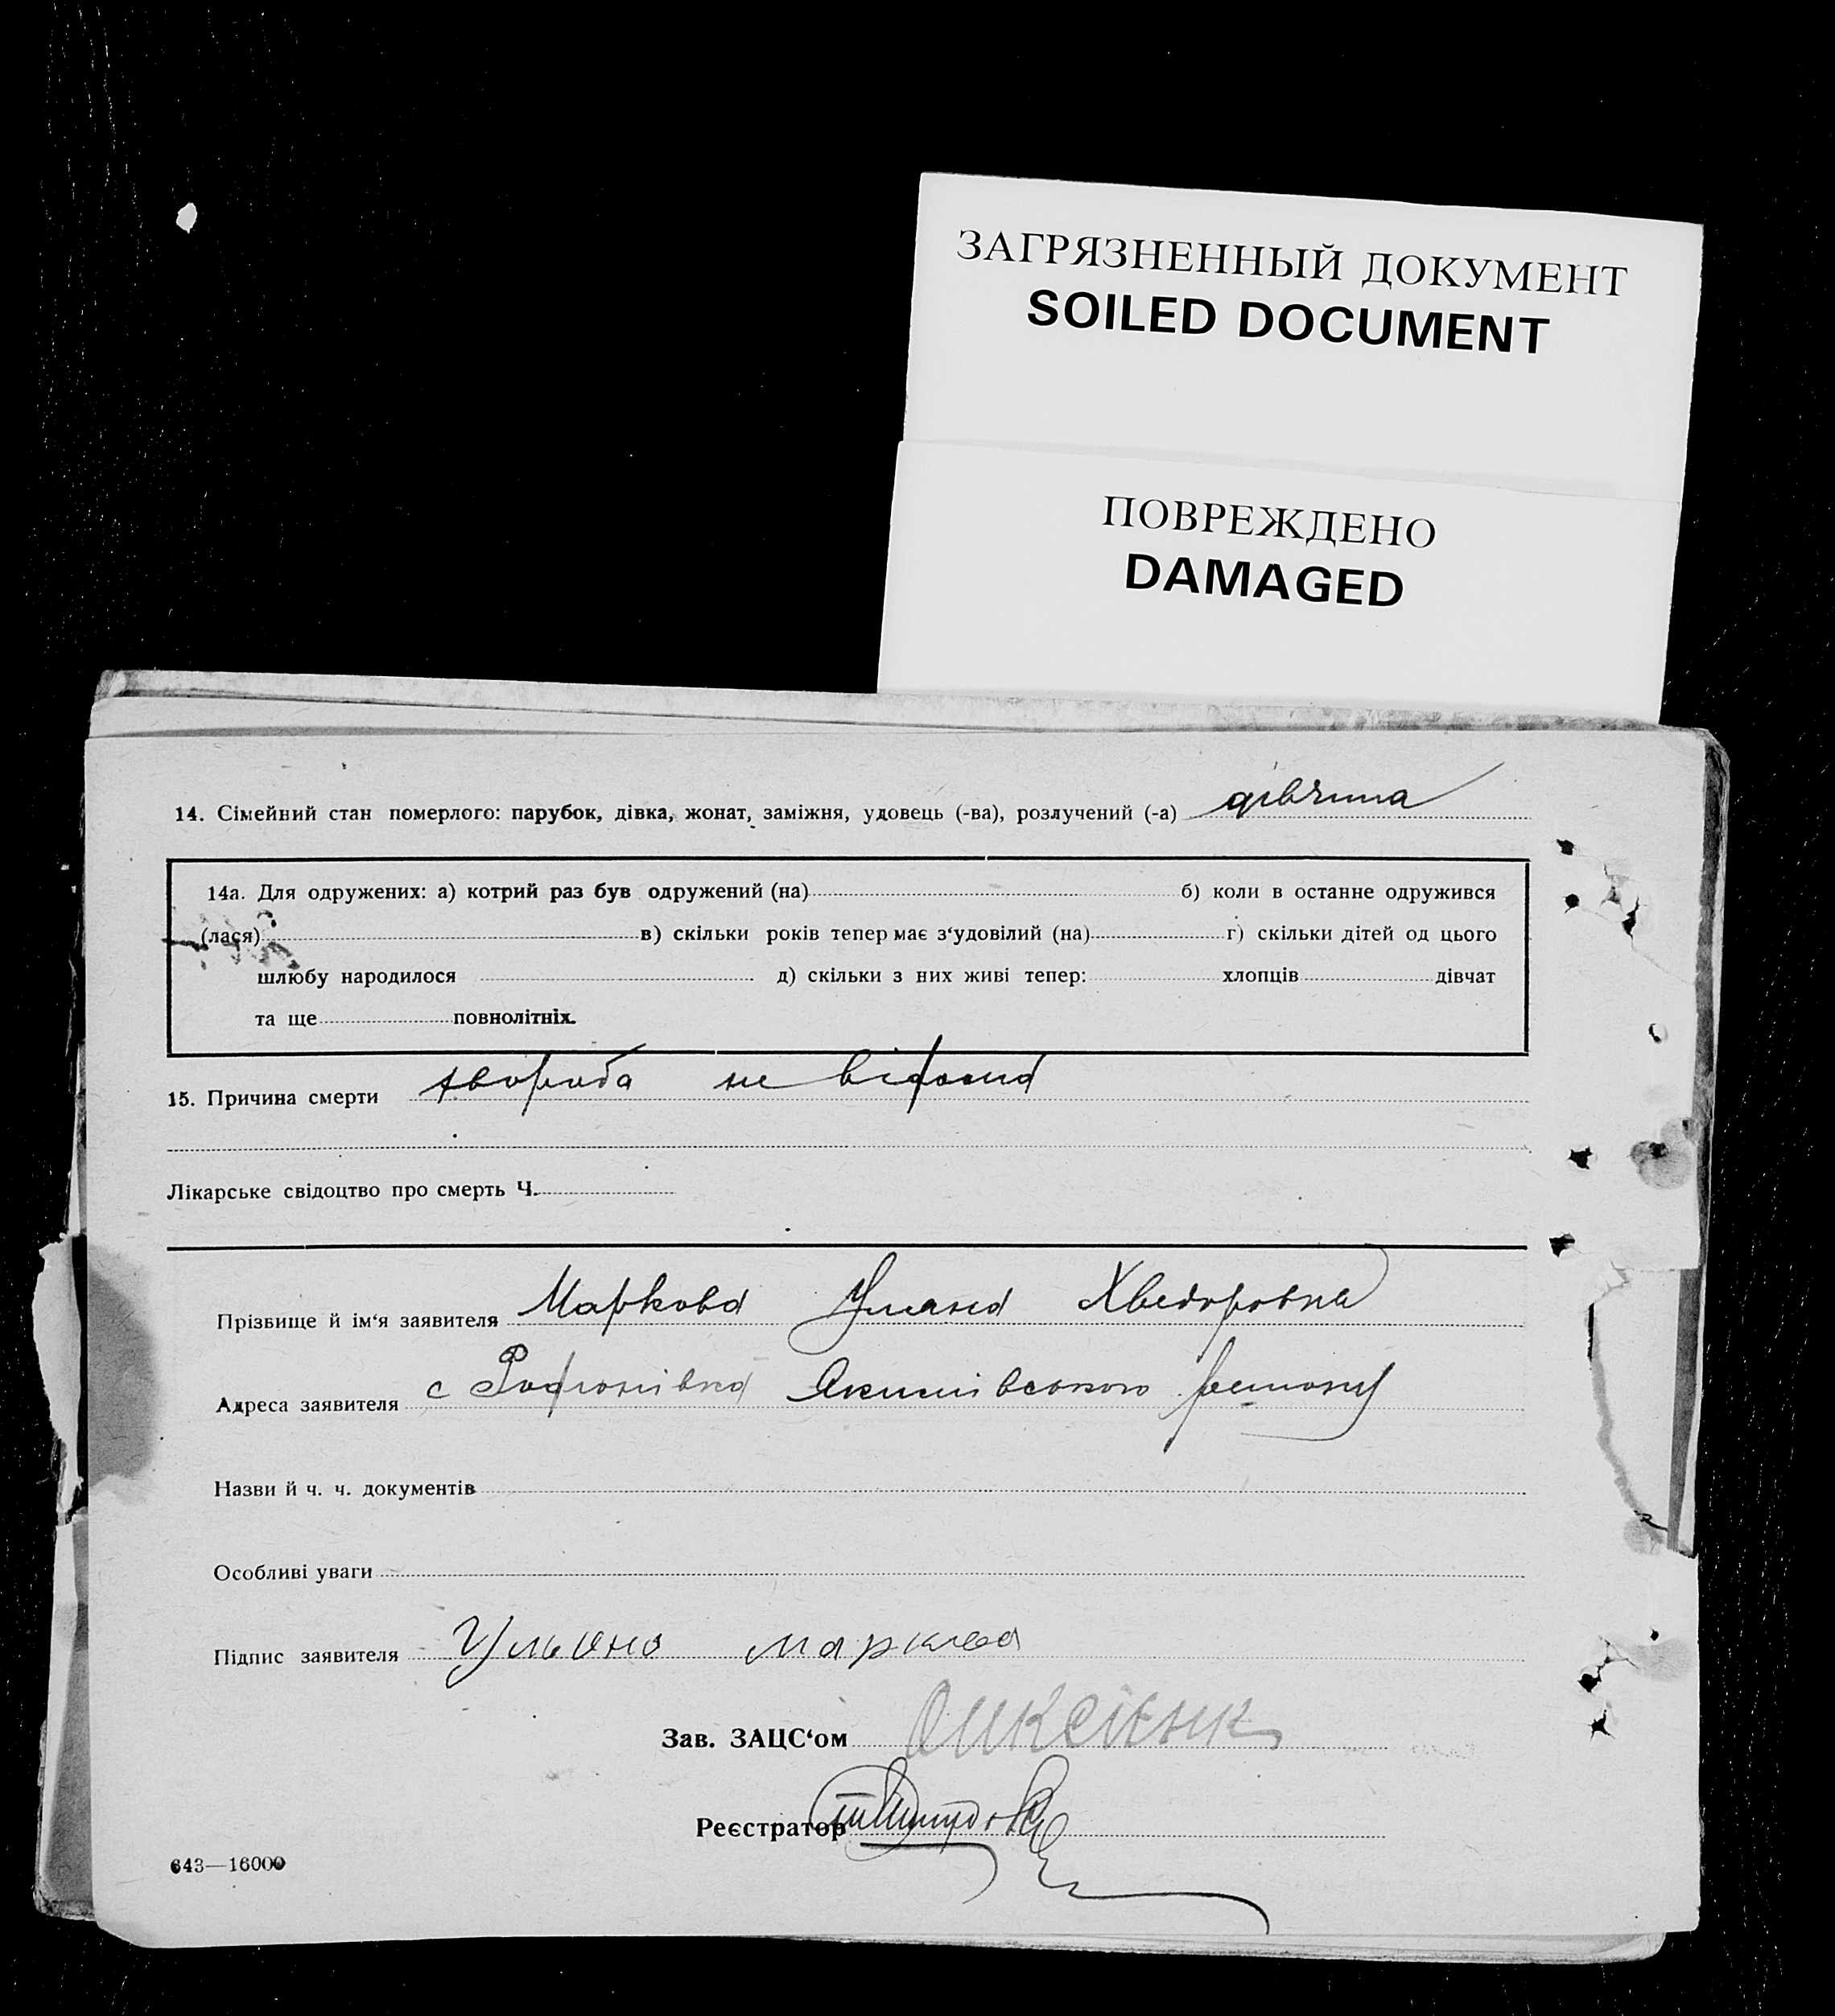 ЗАГРЯЗНЕННЫЙ ДОКУМЕНТ
SOILED DOCUMENT
ПОВРЕЖДЕНО
DAMAGED
14. Сімейний стан померлого: парубок, дівка, жонат, заміжня, удовець (-ва), розлучений (-а) дівчина
14а. Для одружених: а) котрий раз був одружений (на) б) коли в останне одружився
(лася) в) скільки років тепер має з‘удовілий (на) г) скільки дітей од цього
шлюбу народилося д) скільки з них живі тепер: хлопців дівчат
та ще повнолітніх.
15. Причина смерти хвороба не відома
Лікарське свідоцтво про смерть Ч.
Прізбище й ім‘я заявителя Маркова Уляна Хведоровна
Адреса заявителя с Родіонівка Якимівського району
Назви й ч. ч. документів
Особливі уваги
Підпис заявителя Ульяна маркова
Зав. ЗАЦС‘ом
Реєстратор
643—16000